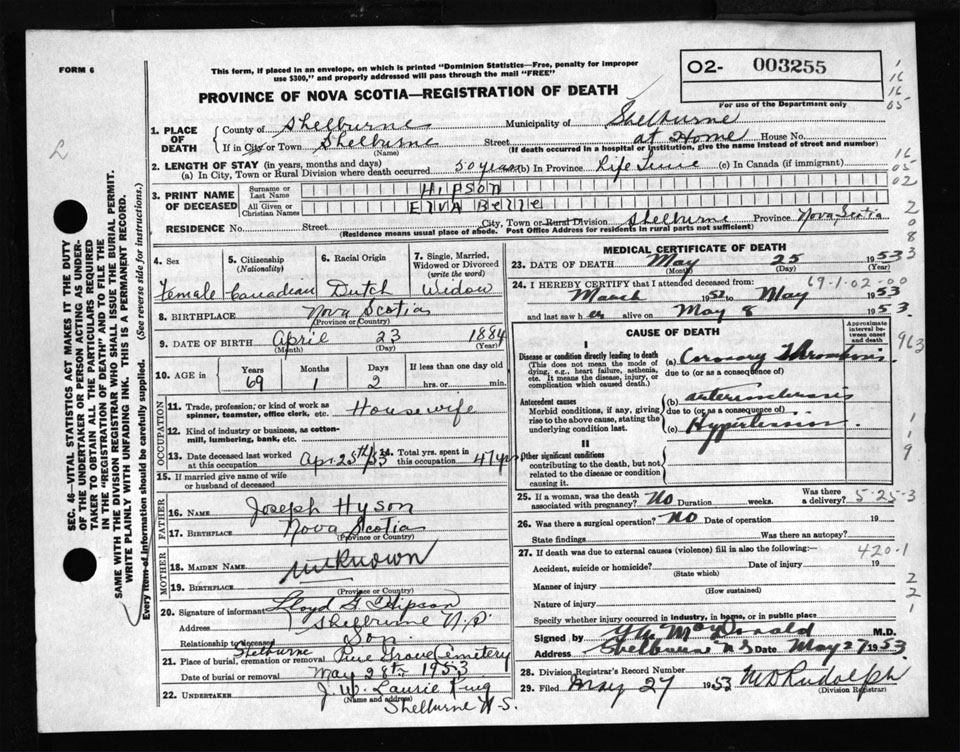 FORM 6
This form, if placed in an envelope, on which is printed "Dominion Statistics—Free, penalty for improper
use $300," and properly addressed will pass through the mail "FREE"
02- 003255
For use of the Department only
PROVINCE OF NOVA SCOTIA—REGISTRATION OF DEATH
1. PLACE OF DEATH
County of Shelburne Municipality of Shelburne
If in City or Town Shelburne Street at Home House No.
(Name) (If death occurred in a hospital or institution, give the name instead of street and number)
2. LENGTH OF STAY (in years, months and days)
(a) In City, Town or Rural Division where death occurred 50 years (b) In Province Life Time (c) In Canada (if immigrant)
3. PRINT NAME OF DECEASED
Surname or Last Name HIPSON
All Given or Christian Names ELVA BELLE
RESIDENCE No. Street City, Town or Rural Division Shelburne Province Nova Scotia
(Residence means usual place of abode. Post Office Address for residents in rural parts not sufficient)
4. Sex Female
5. Citizenship (Nationality) Canadian
6. Racial Origin Dutch
7. Single, Married, Widowed or Divorced (write the word) Widow
8. BIRTHPLACE Nova Scotia
(Province or Country)
9. DATE OF BIRTH April 23 1884
(Month) (Day) (Year)
10. AGE in Years 69 Months 1 Days 2 If less than one day old hrs. or min.
OCCUPATION
11. Trade, profession, or kind of work as spinner, teamster, office clerk, etc. Housewife
12. Kind of industry or business, as cotton-mill, lumbering, bank, etc.
13. Date deceased last worked at this occupation Apr 25th/53 14. Total yrs. spent in this occupation 47 yrs
15. If married give name of wife or husband of deceased
FATHER
16. Name Joseph Hyson
17. BIRTHPLACE Nova Scotia
(Province or Country)
MOTHER
18. MAIDEN NAME unknown
19. BIRTHPLACE
(Province or Country)
20. Signature of informant Lloyd G. Hipson
Address Shelburne N.S.
Relationship to deceased Son
21. Place of burial, cremation or removal Shelburne Pine Grove Cemetery
Date of burial or removal May 28th 1953
22. UNDERTAKER J. W. Laurie King
(Name and address)
Shelburne N.S.
MEDICAL CERTIFICATE OF DEATH
23. DATE OF DEATH May 25 1953
(Month) (Day) (Year)
24. I HEREBY CERTIFY that I attended deceased from: 69-1-02-00
March 1952 to May 1953
and last saw her alive on May 8 1953.
CAUSE OF DEATH
Approximate interval between onset and death
I
Disease or condition directly leading to death
(This does not mean the mode of dying, e.g., heart failure, asthenia, etc. It means the disease, injury, or complication which caused death.)
(a) Coronary Thrombosis
due to (or as a consequence of)
Antecedent causes
Morbid conditions, if any, giving rise to the above cause, stating the underlying condition last.
(b) arteriosclerosis
due to (or as a consequence of)
(c) Hypertension
II
Other significant conditions
contributing to the death, but not related to the disease or condition causing it.
25. If a woman, was the death associated with pregnancy? No Duration weeks. Was there a delivery? 5-25-3
26. Was there a surgical operation? No Date of operation 19
State findings Was there an autopsy?
27. If death was due to external causes (violence) fill in also the following:— 420.1
Accident, suicide or homicide? Date of injury 19
(State which)
Manner of injury
(How sustained)
Nature of injury
Specify whether injury occurred in industry, in home, or in public place
Signed by McDonald M.D.
Address Shelburne N.S. Date May 27 1953
28. Division Registrar's Record Number
29. Filed May 27 1953 M D Rudolph
(Division Registrar)
SEC. 46—VITAL STATISTICS ACT MAKES IT THE DUTY
OF THE UNDERTAKER OR PERSON ACTING AS UNDER-
TAKER TO OBTAIN ALL THE PARTICULARS REQUIRED
IN THE "REGISTRATION OF DEATH" AND TO FILE THE
SAME WITH THE DIVISION REGISTRAR WHO SHALL ISSUE THE BURIAL PERMIT.
WRITE PLAINLY WITH UNFADING INK. THIS IS A PERMANENT RECORD.
Every item of information should be carefully supplied. (See reverse side for instructions.)
1
16
16
05
16
05
02
2
0
8
3
963
1
9
2
2
1